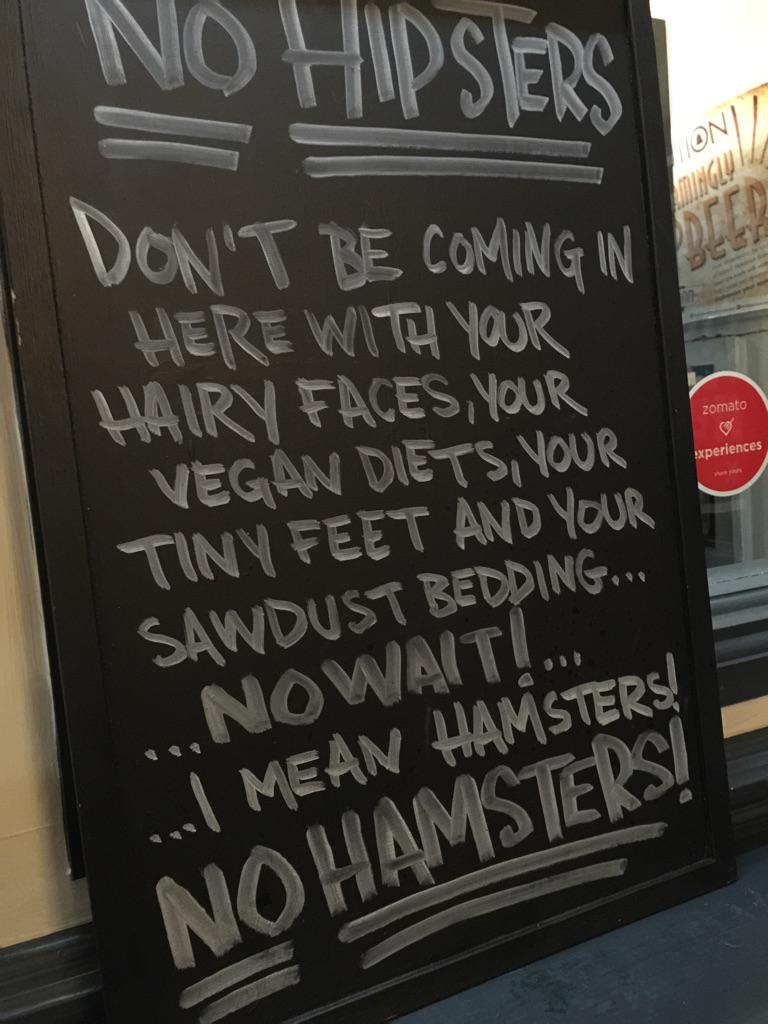 NO HIPSTERS
DON'T BE COMING IN
HERE WITH YOUR
HAIRY FACES, YOUR
VEGAN DIETS, YOUR
TINY FEET AND YOUR
SAWDUST BEDDING...
...NO WAIT!...
...I MEAN HAMSTERS!
NO HAMSTERS!
zomato
experiences
share yours
BEER